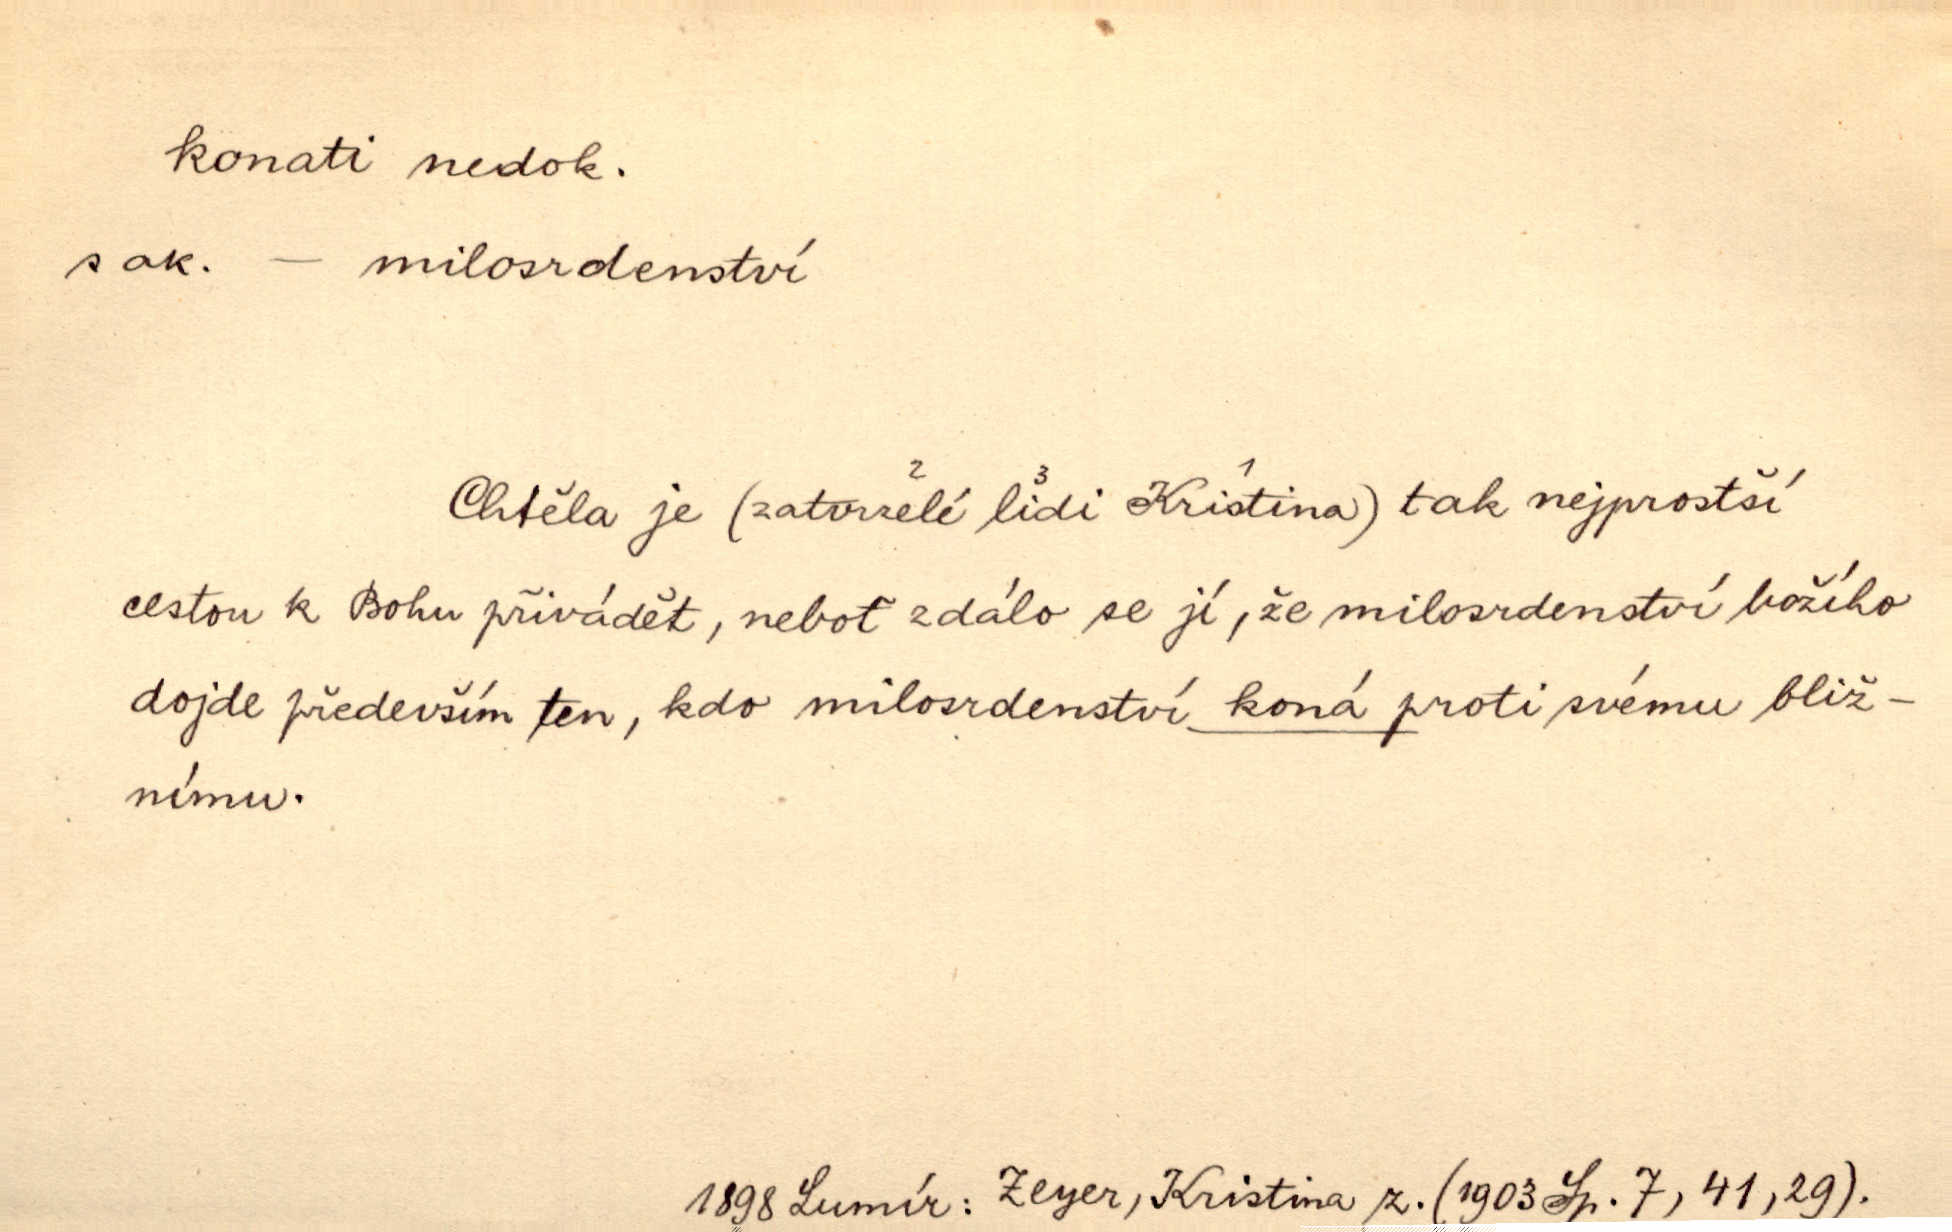 konati nedok.
s ak. — milosrdenství
2 3 1
Chtěla je (zatvrzelé lidi Kristina) tak nejprostší
cestou k Bohu přivádět, neboť zdálo se jí, že milosrdenství božího
dojde především ten, kdo milosrdenství koná proti svému bliž-
nímu.
1898 Lumír: Zeyer, Kristina z. (1903 Sp. 7, 41, 29).